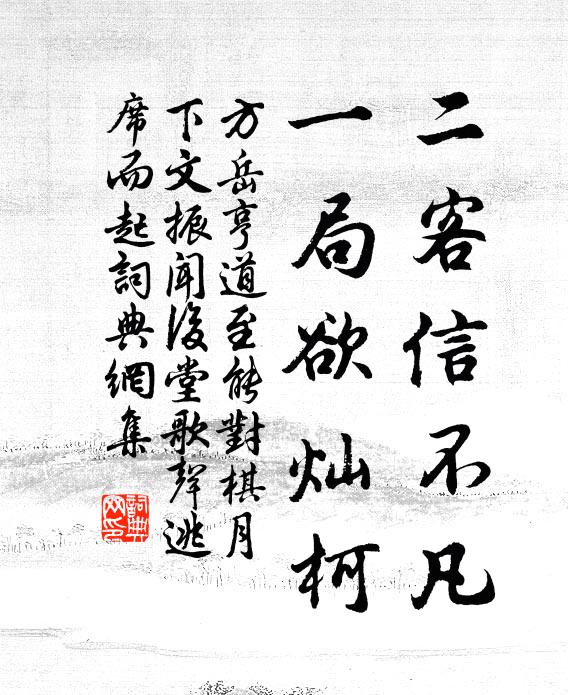 二客信不凡
一局欲灿柯
方岳亨道至能對棋月
下文振闻後堂歌聲逃
席而起詞典網集
詞典
网印